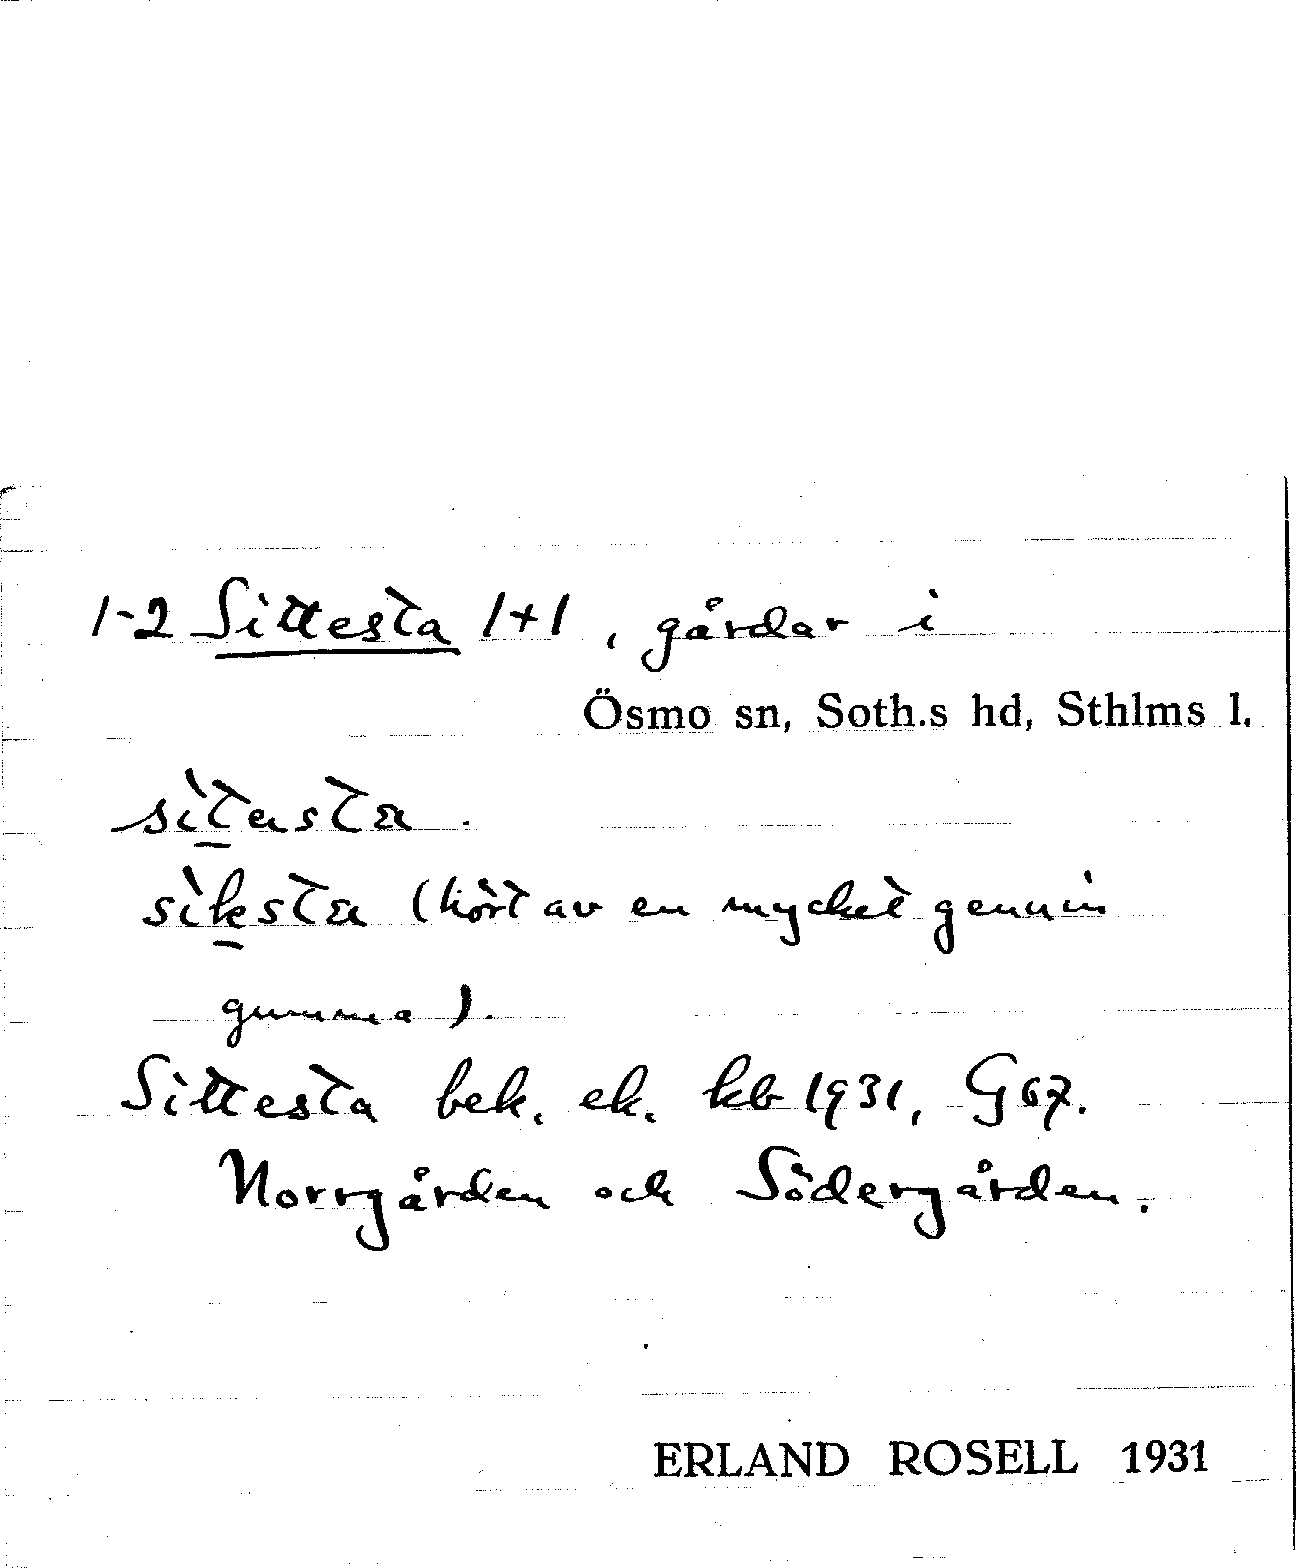 1-2 Sittesta 1+1, gårdar i
Ösmo sn, Soth.s hd, Sthlms l.
sìtasta.
sìksta (hört av en mycket genuin
gumma).
Sittesta bek. ek. kb 1931, G67.
Norrgården och Södergården.
ERLAND ROSELL 1931